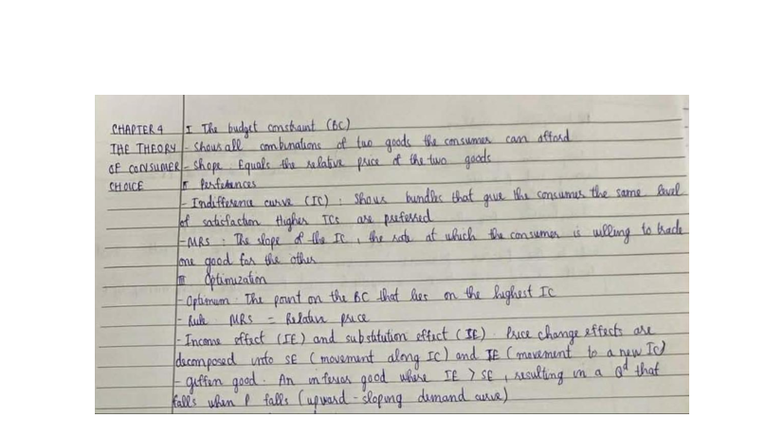 CHAPTER 4 I The budget constraint (BC)
THE THEORY - Shows all combinations of two goods the consumer can afford
OF CONSUMER - Shope Equals the relative price of the two goods
CHOICE II Perferences
- Indifference curve (IC) : Shows bundles that give the consumer the same level
of satisfaction Higher ICs are preferred
- MRS : The slope of the IC, the rate at which the consumer is willing to trade
one good for the other
III Optimization
- Optimum The point on the BC that lies on the highest IC
- Rule MRS = Relative price
- Income effect (IE) and substitution effect (SE). Price change effects are
decomposed into SE (movement along IC) and IE (movement to a new IC)
- giffen good. An inferior good where IE > SE, resulting in a Qd that
falls when P falls (upward-sloping demand curve)